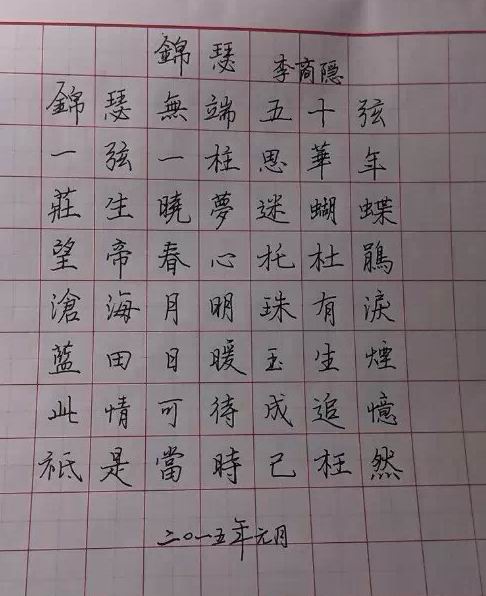 錦瑟 李商隠
錦瑟無端五十弦
一弦一柱思華年
莊生曉夢迷蝴蝶
望帝春心托杜鵑
滄海月明珠有淚
藍田日暖玉生煙
此情可待成追憶
祇是當時已枉然
二〇一五年元月